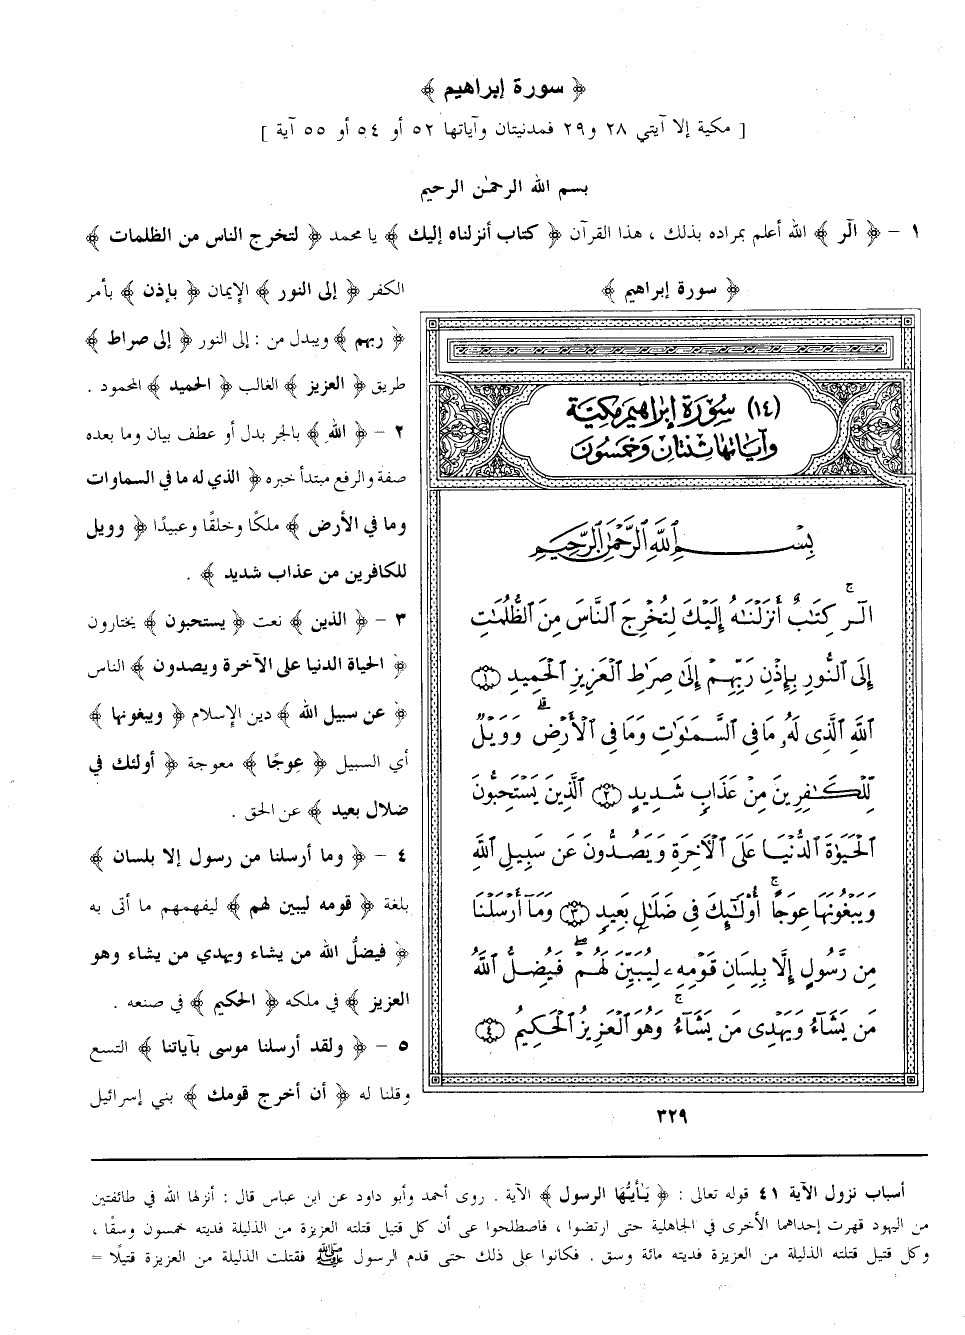 ﴿ سورة إبراهيم ﴾
[ مكية إلا آيتي ٢٨ و٢٩ فمدنيتان وآياتها ٥٢ أو ٥٤ أو ٥٥ آية ]
بسم الله الرحمٰن الرحيم
١ – ﴿ الٓر ﴾ الله أعلم بمراده بذلك ، هذا القرآن ﴿ كتاب أنزلناه إليك ﴾ يا محمد ﴿ لتخرج الناس من الظلمات ﴾
الكفر ﴿ إلى النور ﴾ الإيمان ﴿ بإذن ﴾ بأمر
﴿ ربهم ﴾ ويبدل من : إلى النور ﴿ إلى صراط ﴾
طريق ﴿ العزيز ﴾ الغالب ﴿ الحميد ﴾ المحمود .
٢ – ﴿ الله ﴾ بالجر بدل أو عطف بيان وما بعده
صفة والرفع مبتدأ خبره ﴿ الذي له ما في السماوات
وما في الأرض ﴾ ملكًا وخلقًا وعبيدًا ﴿ وويل
للكافرين من عذاب شديد ﴾ .
٣ – ﴿ الذين ﴾ نعت ﴿ يستحبون ﴾ يختارون
﴿ الحياة الدنيا على الآخرة ويصدون ﴾ الناس
﴿ عن سبيل الله ﴾ دين الإسلام ﴿ ويبغونها ﴾
أي السبيل ﴿ عوجًا ﴾ معوجة ﴿ أولئك في
ضلال بعيد ﴾ عن الحق .
٤ – ﴿ وما أرسلنا من رسول إلا بلسان ﴾
بلغة ﴿ قومه ليبين لهم ﴾ ليفهمهم ما أتى به
﴿ فيضلُّ الله من يشاء ويهدي من يشاء وهو
العزيز ﴾ في ملكه ﴿ الحكيم ﴾ في صنعه .
٥ – ﴿ ولقد أرسلنا موسى بآياتنا ﴾ التسع
وقلنا له ﴿ أن أخرج قومك ﴾ بني إسرائيل
﴿ سورة إبراهيم ﴾
(١٤) سُورَةُ إِبْرَاهِيمَ مَكِّيَّة
وَآيَاتُهَا ثِنْتَانِ وَخَمْسُونَ
بِسْمِ ٱللَّهِ ٱلرَّحْمَٰنِ ٱلرَّحِيمِ
الٓر ۚ كِتَٰبٌ أَنزَلْنَٰهُ إِلَيْكَ لِتُخْرِجَ ٱلنَّاسَ مِنَ ٱلظُّلُمَٰتِ
إِلَى ٱلنُّورِ بِإِذْنِ رَبِّهِمْ إِلَىٰ صِرَٰطِ ٱلْعَزِيزِ ٱلْحَمِيدِ ١
ٱللَّهِ ٱلَّذِى لَهُۥ مَا فِى ٱلسَّمَٰوَٰتِ وَمَا فِى ٱلْأَرْضِ ۗ وَوَيْلٌ
لِّلْكَٰفِرِينَ مِنْ عَذَابٍ شَدِيدٍ ٢ ٱلَّذِينَ يَسْتَحِبُّونَ
ٱلْحَيَوٰةَ ٱلدُّنْيَا عَلَى ٱلْآخِرَةِ وَيَصُدُّونَ عَن سَبِيلِ ٱللَّهِ
وَيَبْغُونَهَا عِوَجًا ۚ أُو۟لَٰٓئِكَ فِى ضَلَٰلٍۭ بَعِيدٍ ٣ وَمَآ أَرْسَلْنَا
مِن رَّسُولٍ إِلَّا بِلِسَانِ قَوْمِهِۦ لِيُبَيِّنَ لَهُمْ ۖ فَيُضِلُّ ٱللَّهُ
مَن يَشَآءُ وَيَهْدِى مَن يَشَآءُ ۚ وَهُوَ ٱلْعَزِيزُ ٱلْحَكِيمُ ٤
٣٢٩
أسباب نزول الآية ٤١ قوله تعالى : ﴿ يَٰأيُّها الرسول ﴾ الآية . روى أحمد وأبو داود عن ابن عباس قال : أنزلها الله في طائفتين
من اليهود قهرت إحداهما الأخرى في الجاهلية حتى ارتضوا ، فاصطلحوا على أن كل قتيل قتلته العزيزة من الذليلة فديته خمسون وسقًا ،
وكل قتيل قتلته الذليلة من العزيزة فديته مائة وسق . فكانوا على ذلك حتى قدم الرسول ﷺ فقتلت الذليلة من العزيزة قتيلًا =